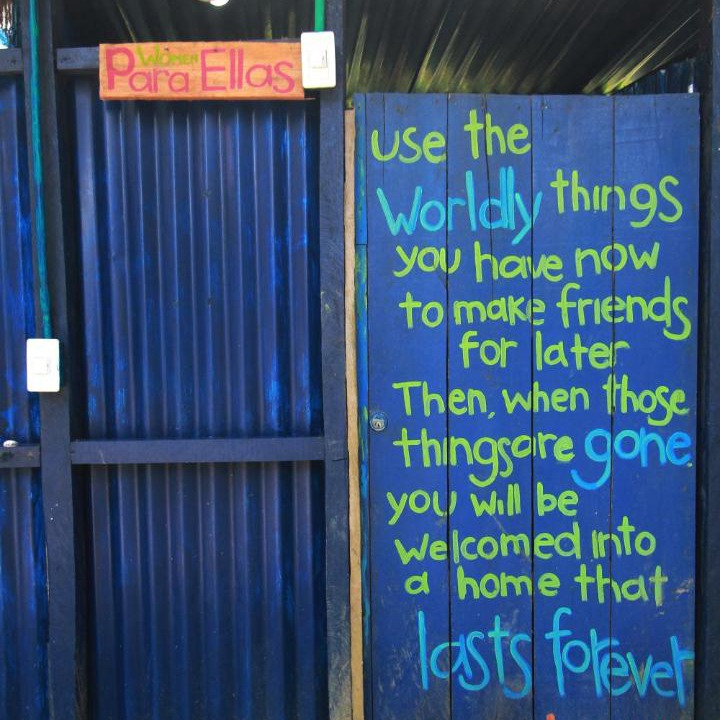 Women
Para Ellas
use the
Worldly things
you have now
to make friends
for later
Then, when those
things are gone
you will be
welcomed into
a home that
lasts forever